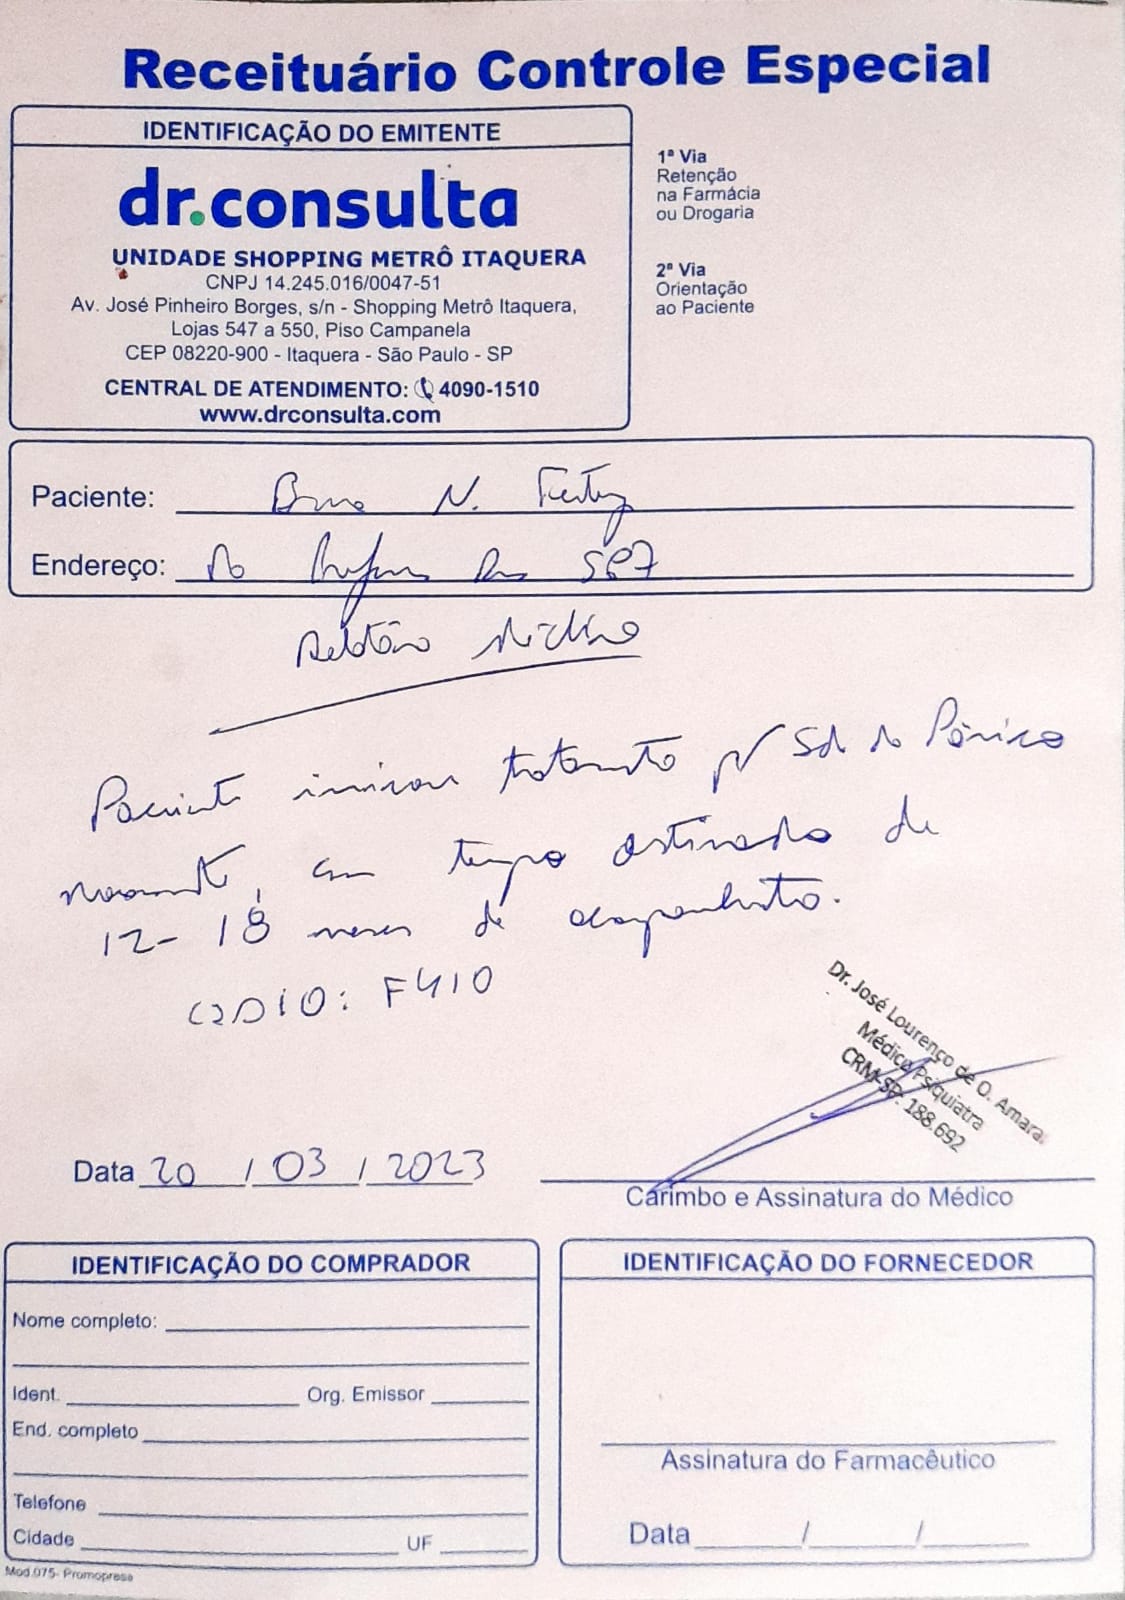 Receituário Controle Especial
IDENTIFICAÇÃO DO EMITENTE
dr.consulta
UNIDADE SHOPPING METRÔ ITAQUERA
CNPJ 14.245.016/0047-51
Av. José Pinheiro Borges, s/n - Shopping Metrô Itaquera,
Lojas 547 a 550, Piso Campanela
CEP 08220-900 - Itaquera - São Paulo - SP
CENTRAL DE ATENDIMENTO: 4090-1510
www.drconsulta.com
1ª Via
Retenção
na Farmácia
ou Drogaria
2ª Via
Orientação
ao Paciente
Paciente: N.
Endereço:
Relatório Médico
Paciente iniciou tratamento p/ Sd do Pânico
novamente, em tempo estimado de
12-18 meses de acompanhamento.
CID10: F410
Dr. José Lourenço de O. Amaral
Médico Psiquiatra
CRM-SP: 188.692
Data 20 / 03 / 2023
Carimbo e Assinatura do Médico
IDENTIFICAÇÃO DO COMPRADOR
Nome completo:
Ident. Org. Emissor
End. completo
Telefone
Cidade UF
IDENTIFICAÇÃO DO FORNECEDOR
Assinatura do Farmacêutico
Data / /
Mod.075- Promopress